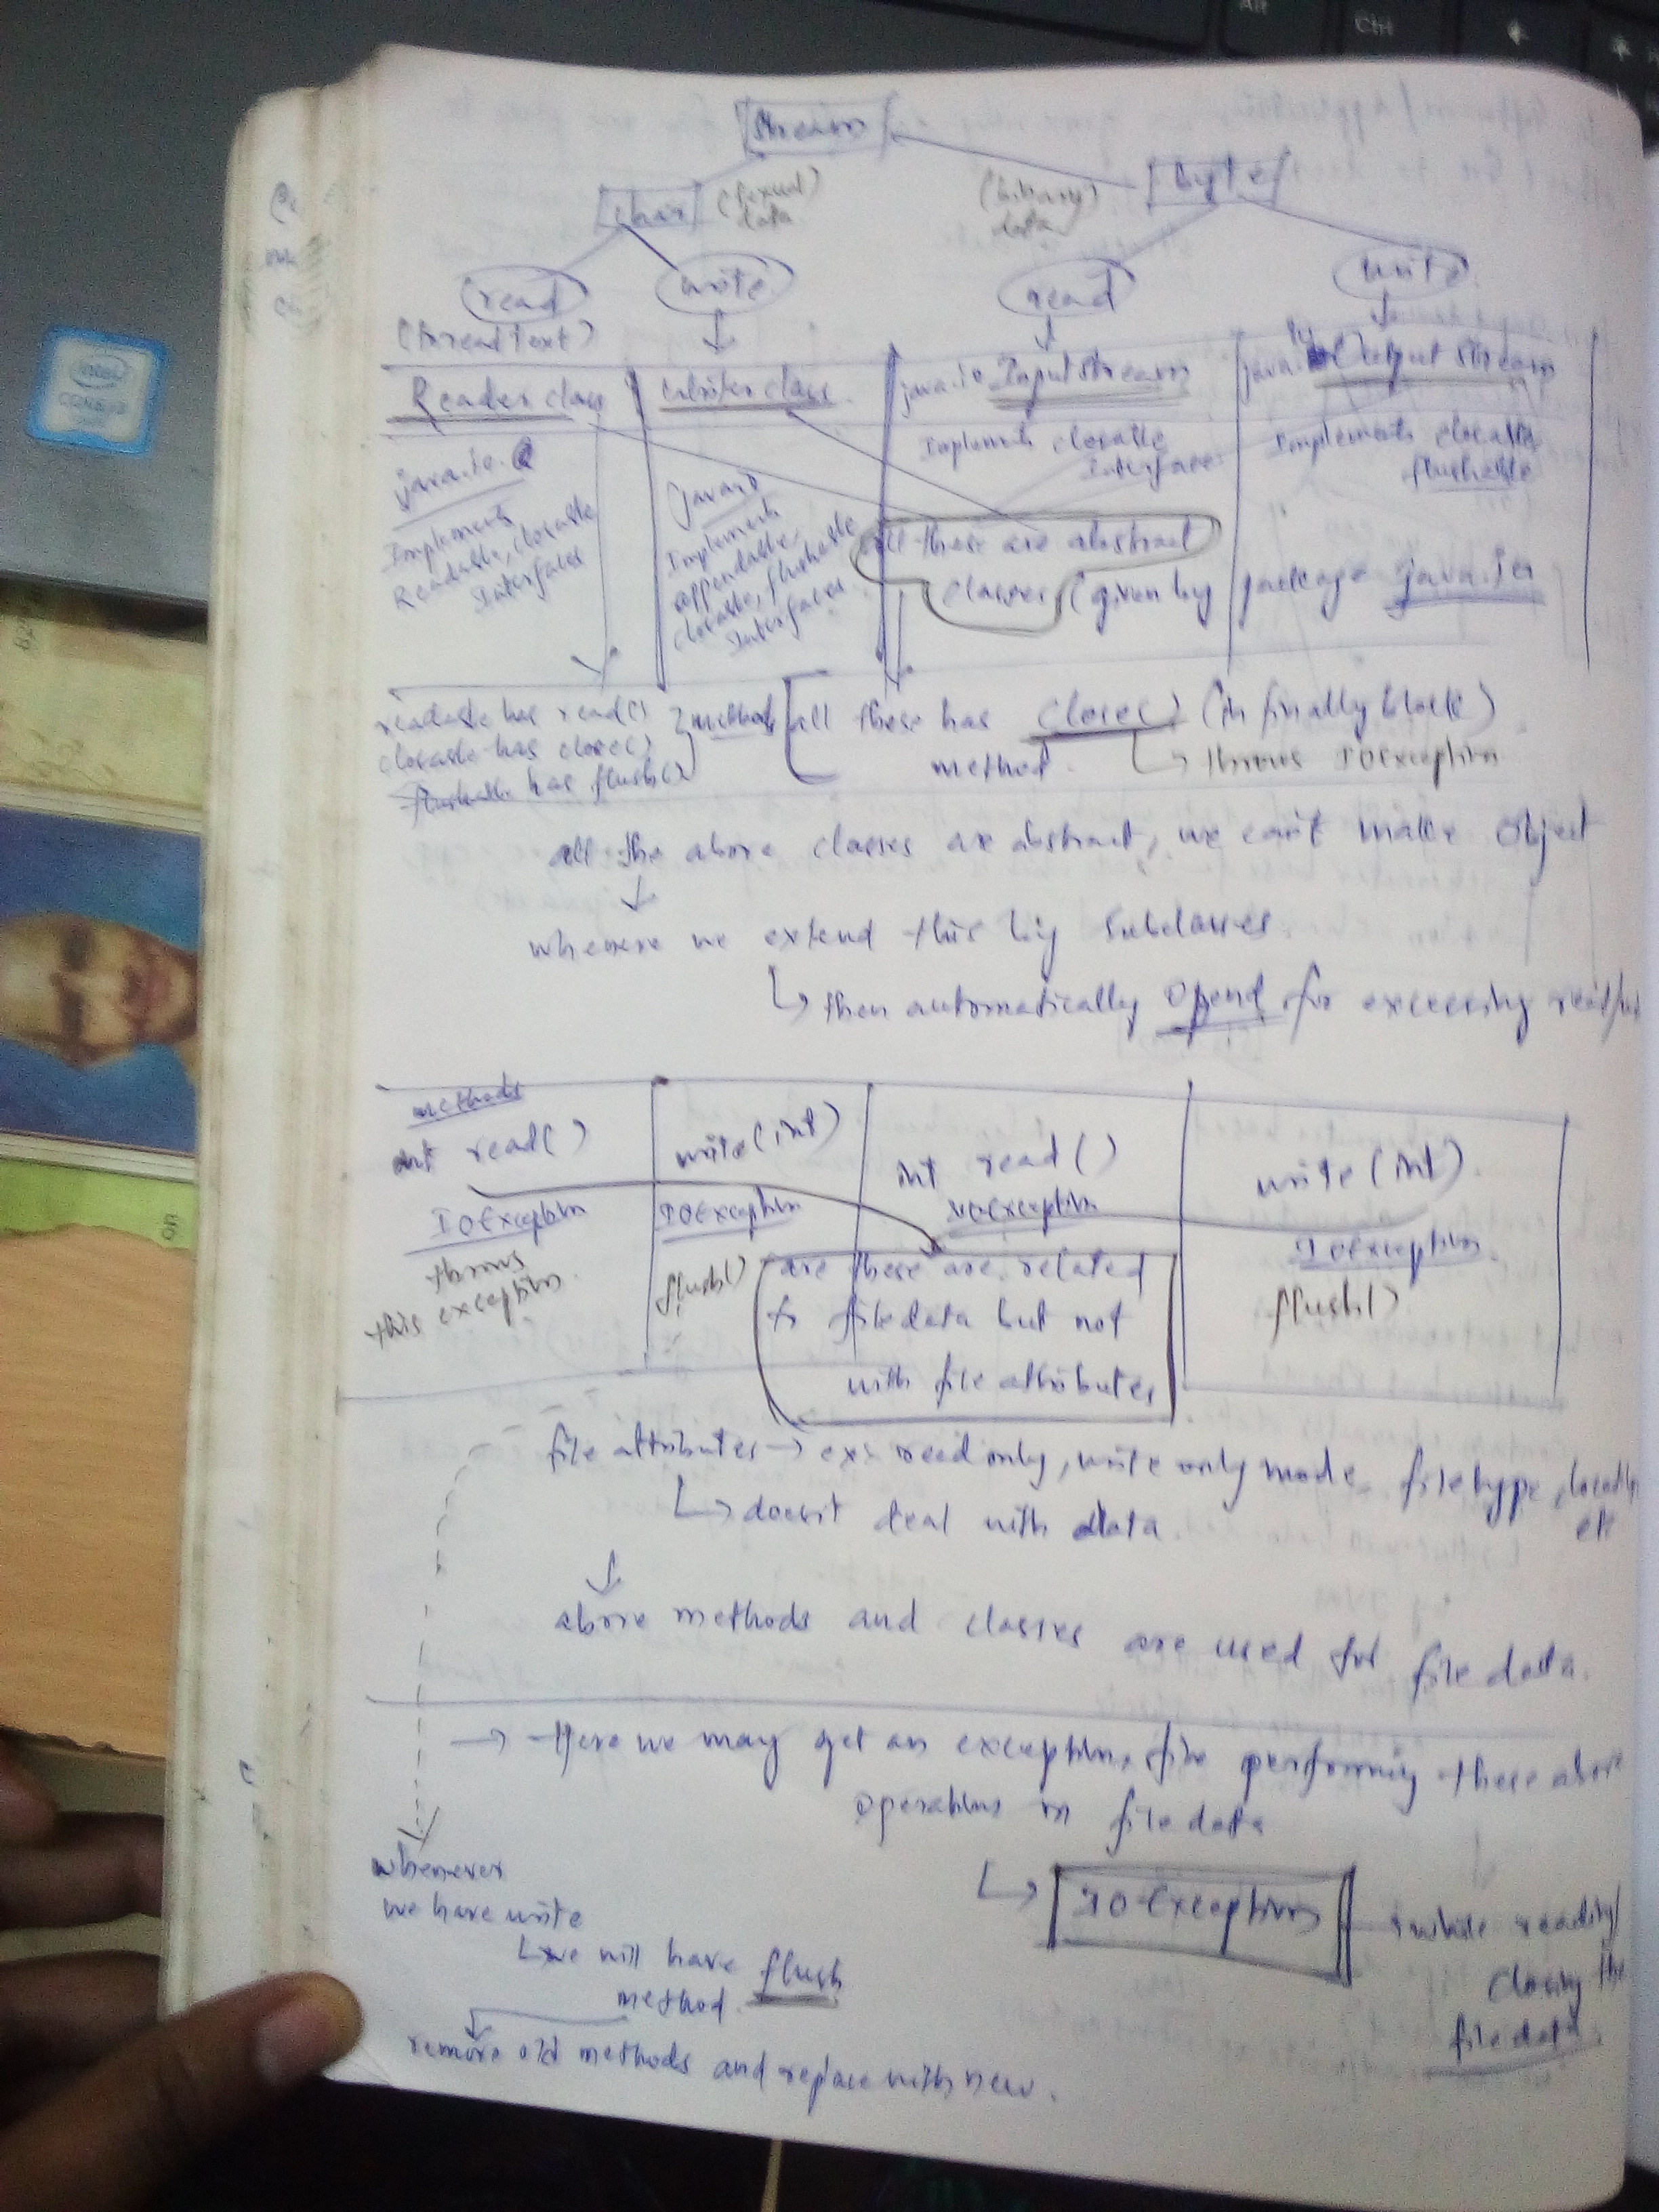 Stream
char (texual) data
(binary) data
byte
read
write
read
write
(to read text)
Reader class
Writer class
java.io Input stream
java.io Output stream
java.io.
Implements
Readable, closable
Interfaces
java.io
Implements
appendable,
closable, flushable
Interfaces
Implements closable
Interface
Implements closable
flushable
all these are abstract
classes (given by package java.io
readable has read()
closable has close()
flushable has flush()
methods
all these has close() (in finally block)
method.
throws IOException
all the above classes are abstract, we can't make object
whenere we extend this by subclasses.
then automatically opend for excecuting
methods
int read()
IOException
throws
this exception.
write(int)
IOException
flush()
int read()
IOException
write(int).
IOException
flush()
are these are related
to file data but not
with file attributes
file attributes → ex: read only, write only mode, file type,
etc
doesn't deal with data.
above methods and classes are used for file data.
→ Here we may get an exception, for performing these above
operations in file data
IO Exceptions
while reading/
closing the
file data.
whenever
we have write
we will have flush
method.
remove old methods and replace with new.
Alt
Ctrl
intel
CORE i3